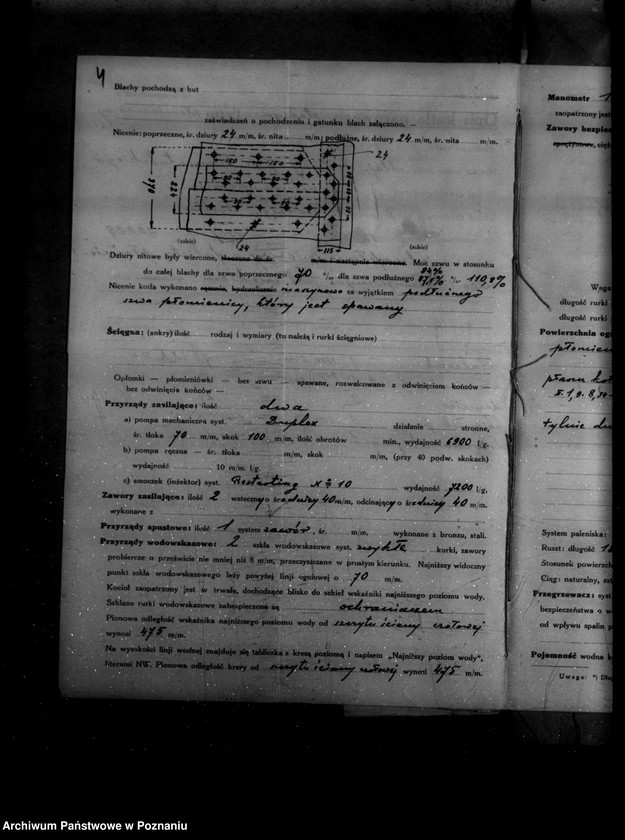 4
Blachy pochodzą z hut
zaświadczeń o pochodzeniu i gatunku blach załączono.
Nicenie: poprzeczne, śr. dziury 24 m/m, śr. nita m/m; podłużne, śr. dziury 24 m/m, śr. nita m/m.
24
150 150
370
224
(szkic) 24 115 (szkic)
Dziury nitowe były wiercone, tłoczone do śr. m/m i następnie wiercone. Moc szwu w stosunku
do całej blachy dla szwa poprzecznego 70 % dla szwa podłużnego 84% 87,1% % 110,8%
Nicenie kotła wykonano ręcznie, hydraulicznie maszynowo za wyjątkiem podłużnego
szwa płomienicy, który jest spawany
Ściągna: (ankry) ilość rodzaj i wymiary (tu należą i rurki ściągniowe)
Opłomki — płomieniówki — bez szwu — spawane, rozwalcowane z odwinięciem końców —
bez odwinięcia końców —
Przyrządy zasilające: ilość dwa
a) pompa mechaniczna syst. Duplex działanie stronne,
śr. tłoka 70 m/m, skok 100 m/m, ilość obrotów min., wydajność 6900 l/g.
b) pompa ręczna — śr. tłoka m/m, skok m/m, (przy 40 podw. skokach)
wydajność 10 m/m. l/g.
c) smoczek (inżektor) syst. Restarting № 10 wydajność 7200 l/g.
Zawory zasilające: ilość 2 wsteczny o średnicy 40 m/m, odcinający o średnicy 40 m/m.
wykonane z
Przyrządy spustowe: ilość 1 system zawór, śr. m/m, wykonane z bronzu, stali.
Przyrządy wodowskazowe: 2 szkła wodowskazowe syst. zwykłe kurki, zawory
probiercze o prześwicie nie mniej niż 8 m/m, przeczyszczane w prustym kierunku. Najniższy widoczny
punkt szkła wodowskazowego leży powyżej linji ogniowej o 70 m/m.
Kocioł zaopatrzony jest w trwałe, dochodzące blisko do szkieł wskaźniki najniższego poziomu wody.
Szklane rurki wodowskazowe zabezpieczone są ochraniaczem
Pionowa odległość wskaźnika najniższego poziomu wody od szczytu ściany czołowej
wynosi 475 m/m.
Na wysokości linji wodnej znajduje się tabliczka z kresą poziomą i napisem „Najniższy poziom wody",
literami NW. Pionowa odległość kresy od szczytu ściany czołowej wynosi 475 m/m.
Manometr 1
zaopatrzony jest
Zawory bezpiec
sprężynowe, cięż
Waga
długość rurki
długość rurki
Powierzchnia og
płomien
tylnie
System paleniska:
Ruszt: długość
Stosunek powierzch
Ciąg: naturalny, szt
Przegrzewacz: syst
bezpieczeństwa o w
od wpływu spalin p
Pojemność wodna k
Uwaga: *) Dłu
Archiwum Państwowe w Poznaniu